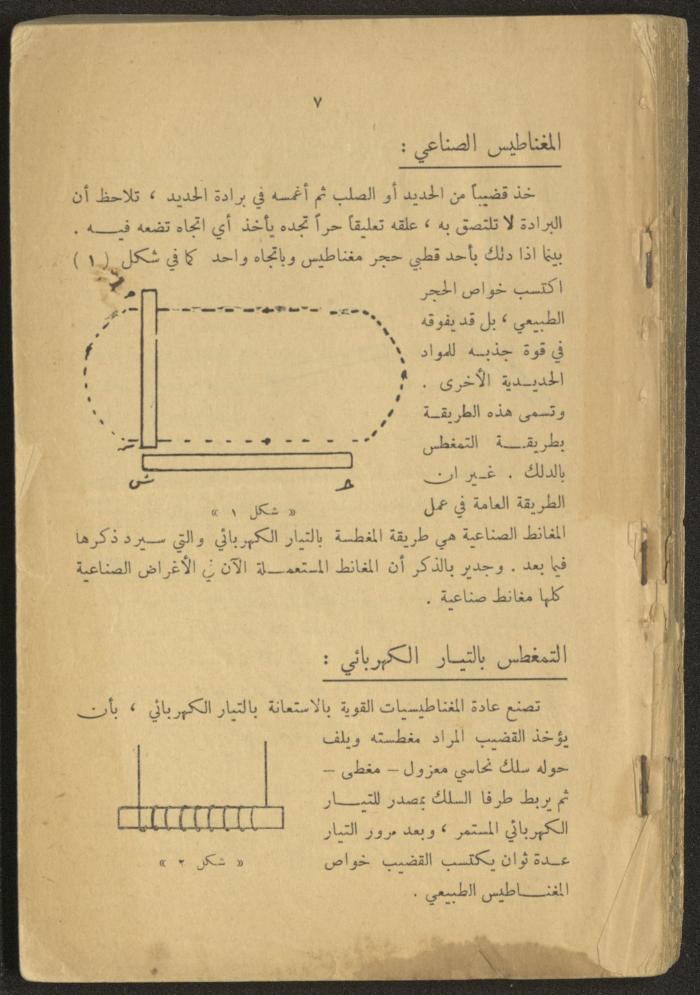 ٧
المغناطيس الصناعي :
خذ قضيباً من الحديد أو الصلب ثم أغمسه في برادة الحديد ، تلاحظ أن
البرادة لا تلتصق به ، علقه تعليقاً حراً تجده يأخذ أي اتجاه تضعه فيـــه .
بينما اذا دلك بأحد قطبي حجر مغناطيس وباتجاه واحد كما في شكل ( ١ )
اكتسب خواص الحجر
الطبيعي ، بل قد يفوقه
في قوة جذبــه للمواد
الحديــدية الأخرى .
وتسمى هذه الطريقــة
بطريقـــة التمغطس
بالدلك . غــير ان
الطريقة العامة في عمل
« شكل ١ »
المغانط الصناعية هي طريقة المغطسة بالتيار الكهربائي والتي ســيرد ذكرها
فيما بعد . وجدير بالذكر أن المغانط المستعمـــلة الآن في الأغراض الصناعية
كلها مغانط صناعية .
التمغطس بالتيـــار الكهربائي :
تصنع عادة المغناطيسيات القوية بالاستعانة بالتيار الكهربائي ، بأن
يؤخذ القضيب المراد مغطسته ويلف
حوله سلك نحاسي معزول – مغطى –
ثم يربط طرفا السلك بمصدر للتيـــار
الكهربائي المستمر ، وبعد مرور التيار
عــدة ثوان يكتسب القضيب خواص
المغنـــاطيس الطبيعي .
« شكل ٢ »